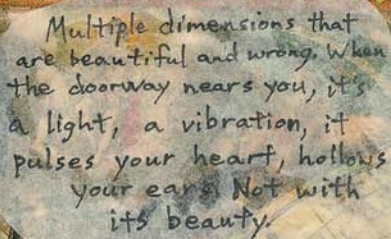 Multiple dimensions that
are beautiful and wrong. When
the doorway nears you, it's
a light, a vibration, it
pulses your heart, hollows
your ears. Not with
its beauty.